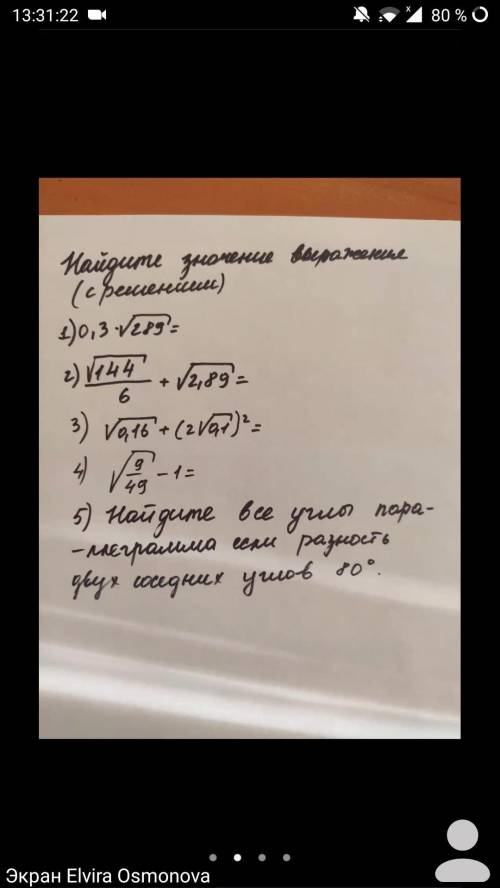 13:31:22
80 %
Найдите значение выражения
(с решением)
1) 0,3·√289=
2) √144/6 + √2,89=
3) √0,16+(2√0,1)²=
4) √9/49-1=
5) Найдите все углы пара-
-ллеграмма если разность
двух соседних углов 80°.
Экран Elvira Osmonova